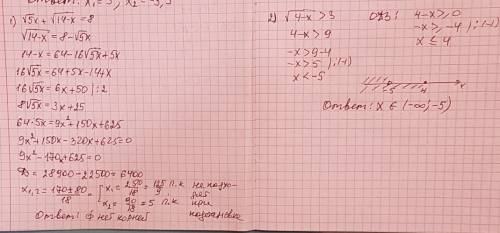 Ответ: x₁ = 3, x₂ = -3,5
1) √5x + √14-x = 8
√14-x = 8-√5x
14-x = 64-16√5x+5x
16√5x = 64+5x-14+x
16√5x = 6x+50 | :2
8√5x = 3x+25
64·5x = 9x²+150x+625
9x²+150x-320x+625=0
9x²-170x+625=0
D = 28900-22500 = 6400
x₁,₂ = 170±80/18 = [x₁ = 250/18 = 125/9 п.к не подхо-
дят
x₂ = 90/18 = 5 п.к при
подстановке
Ответ: ф нет корней
2) √4-x > 3
4-x > 9
-x > 9-4
-x > 5 | :(-1)
x < -5
ОДЗ: 4-x ≥ 0
-x ≥ -4 | :(-1)
x ≤ 4
-5 4 x
Ответ: x ∈ (-∞; -5)